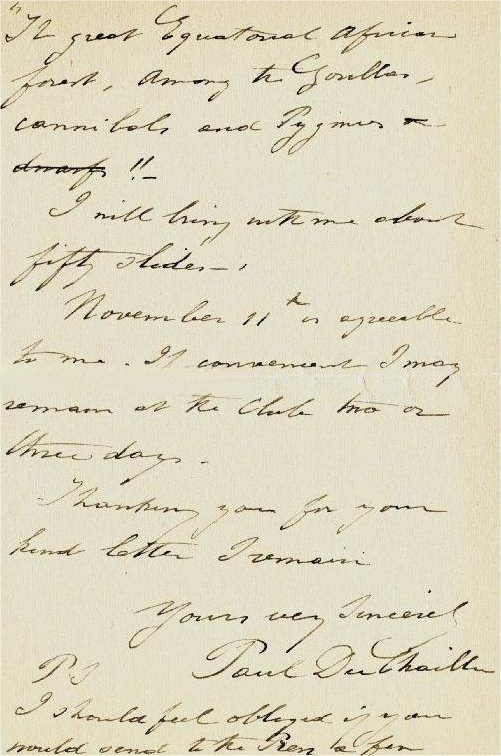 "The great Equatorial African
forest, Among the Gorillas,
cannibals and Pygmies or
dwarfs !!_
I will bring with me about
fifty slides-,
November 11th is agreeable
to me. If convenient I may
remain at the Club two or
three days.
Thanking you for your
kind letter I remain
Yours very Sincerely
Paul Du Chaillu
PS
I should feel obliged if you
would send to the Press